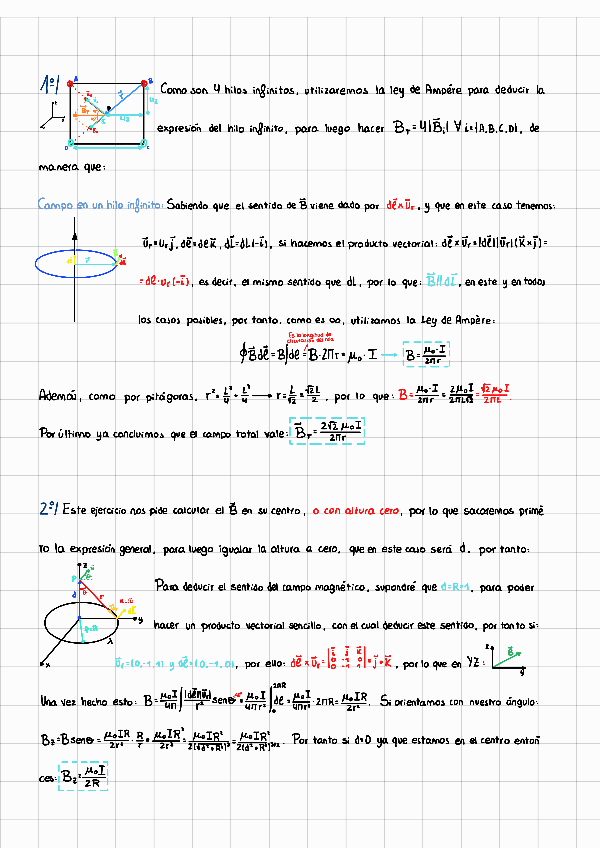 1º) Como son 4 hilos infinitos, utilizaremos la ley de Ampére para deducir la
expresión del hilo infinito, para luego hacer B_T = 4|B⃗_i| ∀ i={A,B,C,D}, de
manera que:
Campo en un hilo infinito: Sabiendo que el sentido de B⃗ viene dado por dℓ⃗×u⃗r, y que en este caso tenemos:
u⃗r=ur j⃗, dℓ⃗=dℓ k⃗, dL⃗=dL(-i⃗), si hacemos el producto vectorial: dℓ⃗×u⃗r=|dℓ⃗||u⃗r|(k⃗×j⃗)=
=dℓ·ur(-i⃗), es decir, el mismo sentido que dL, por lo que: B⃗//dL⃗, en este y en todos
los casos posibles, por tanto, como es ∞, utilizamos la Ley de Ampère:
Es la longitud de
circulación del hilo
∮B⃗dℓ⃗=B∫dℓ=B·2πr=μ₀·I → B=μ₀·I/2πr
Además, como por pitágoras, r²=L²/4+L²/4 → r=L/√2=√2L/2, por lo que: B=μ₀·I/2πr=2μ₀I/2πL√2=√2μ₀I/2πL
Por último ya concluimos que el campo total vale: B⃗_T=2√2μ₀I/2πr
2º) Este ejercicio nos pide calcular el B⃗ en su centro, o con altura cero, por lo que sacaremos prime
ro la expresión general, para luego igualar la altura a cero, que en este caso será d, por tanto:
Para deducir el sentido del campo magnético, supondré que d=R=1, para poder
hacer un producto vectorial sencillo, con el cual deducir este sentido, por tanto si:
u⃗r=(0,-1,1) y dℓ⃗=(0,-1,0), por ello: dℓ⃗×u⃗r= =j⃗+k⃗, por lo que en YZ:
Una vez hecho esto: B=μ₀I/4π∫|dℓ⃗×u⃗r|/r² senθ=μ₀I/4πr²∫₀^2πR dℓ=μ₀I/4πr²·2πR=μ₀IR/2r². Si orientamos con nuestro ángulo:
Bz=B senθ=μ₀IR/2r²·R/r=μ₀IR²/2r³=μ₀IR²/2(√d²+R²)³=μ₀IR²/2(d²+R²)^3/2. Por tanto si d=0 ya que estamos en el centro enton
ces: Bz=μ₀I/2R